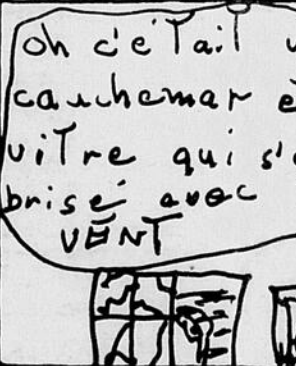 oh c'éTaiT u
cauchemar e
viTre qui s'e
brisé avec
VENT